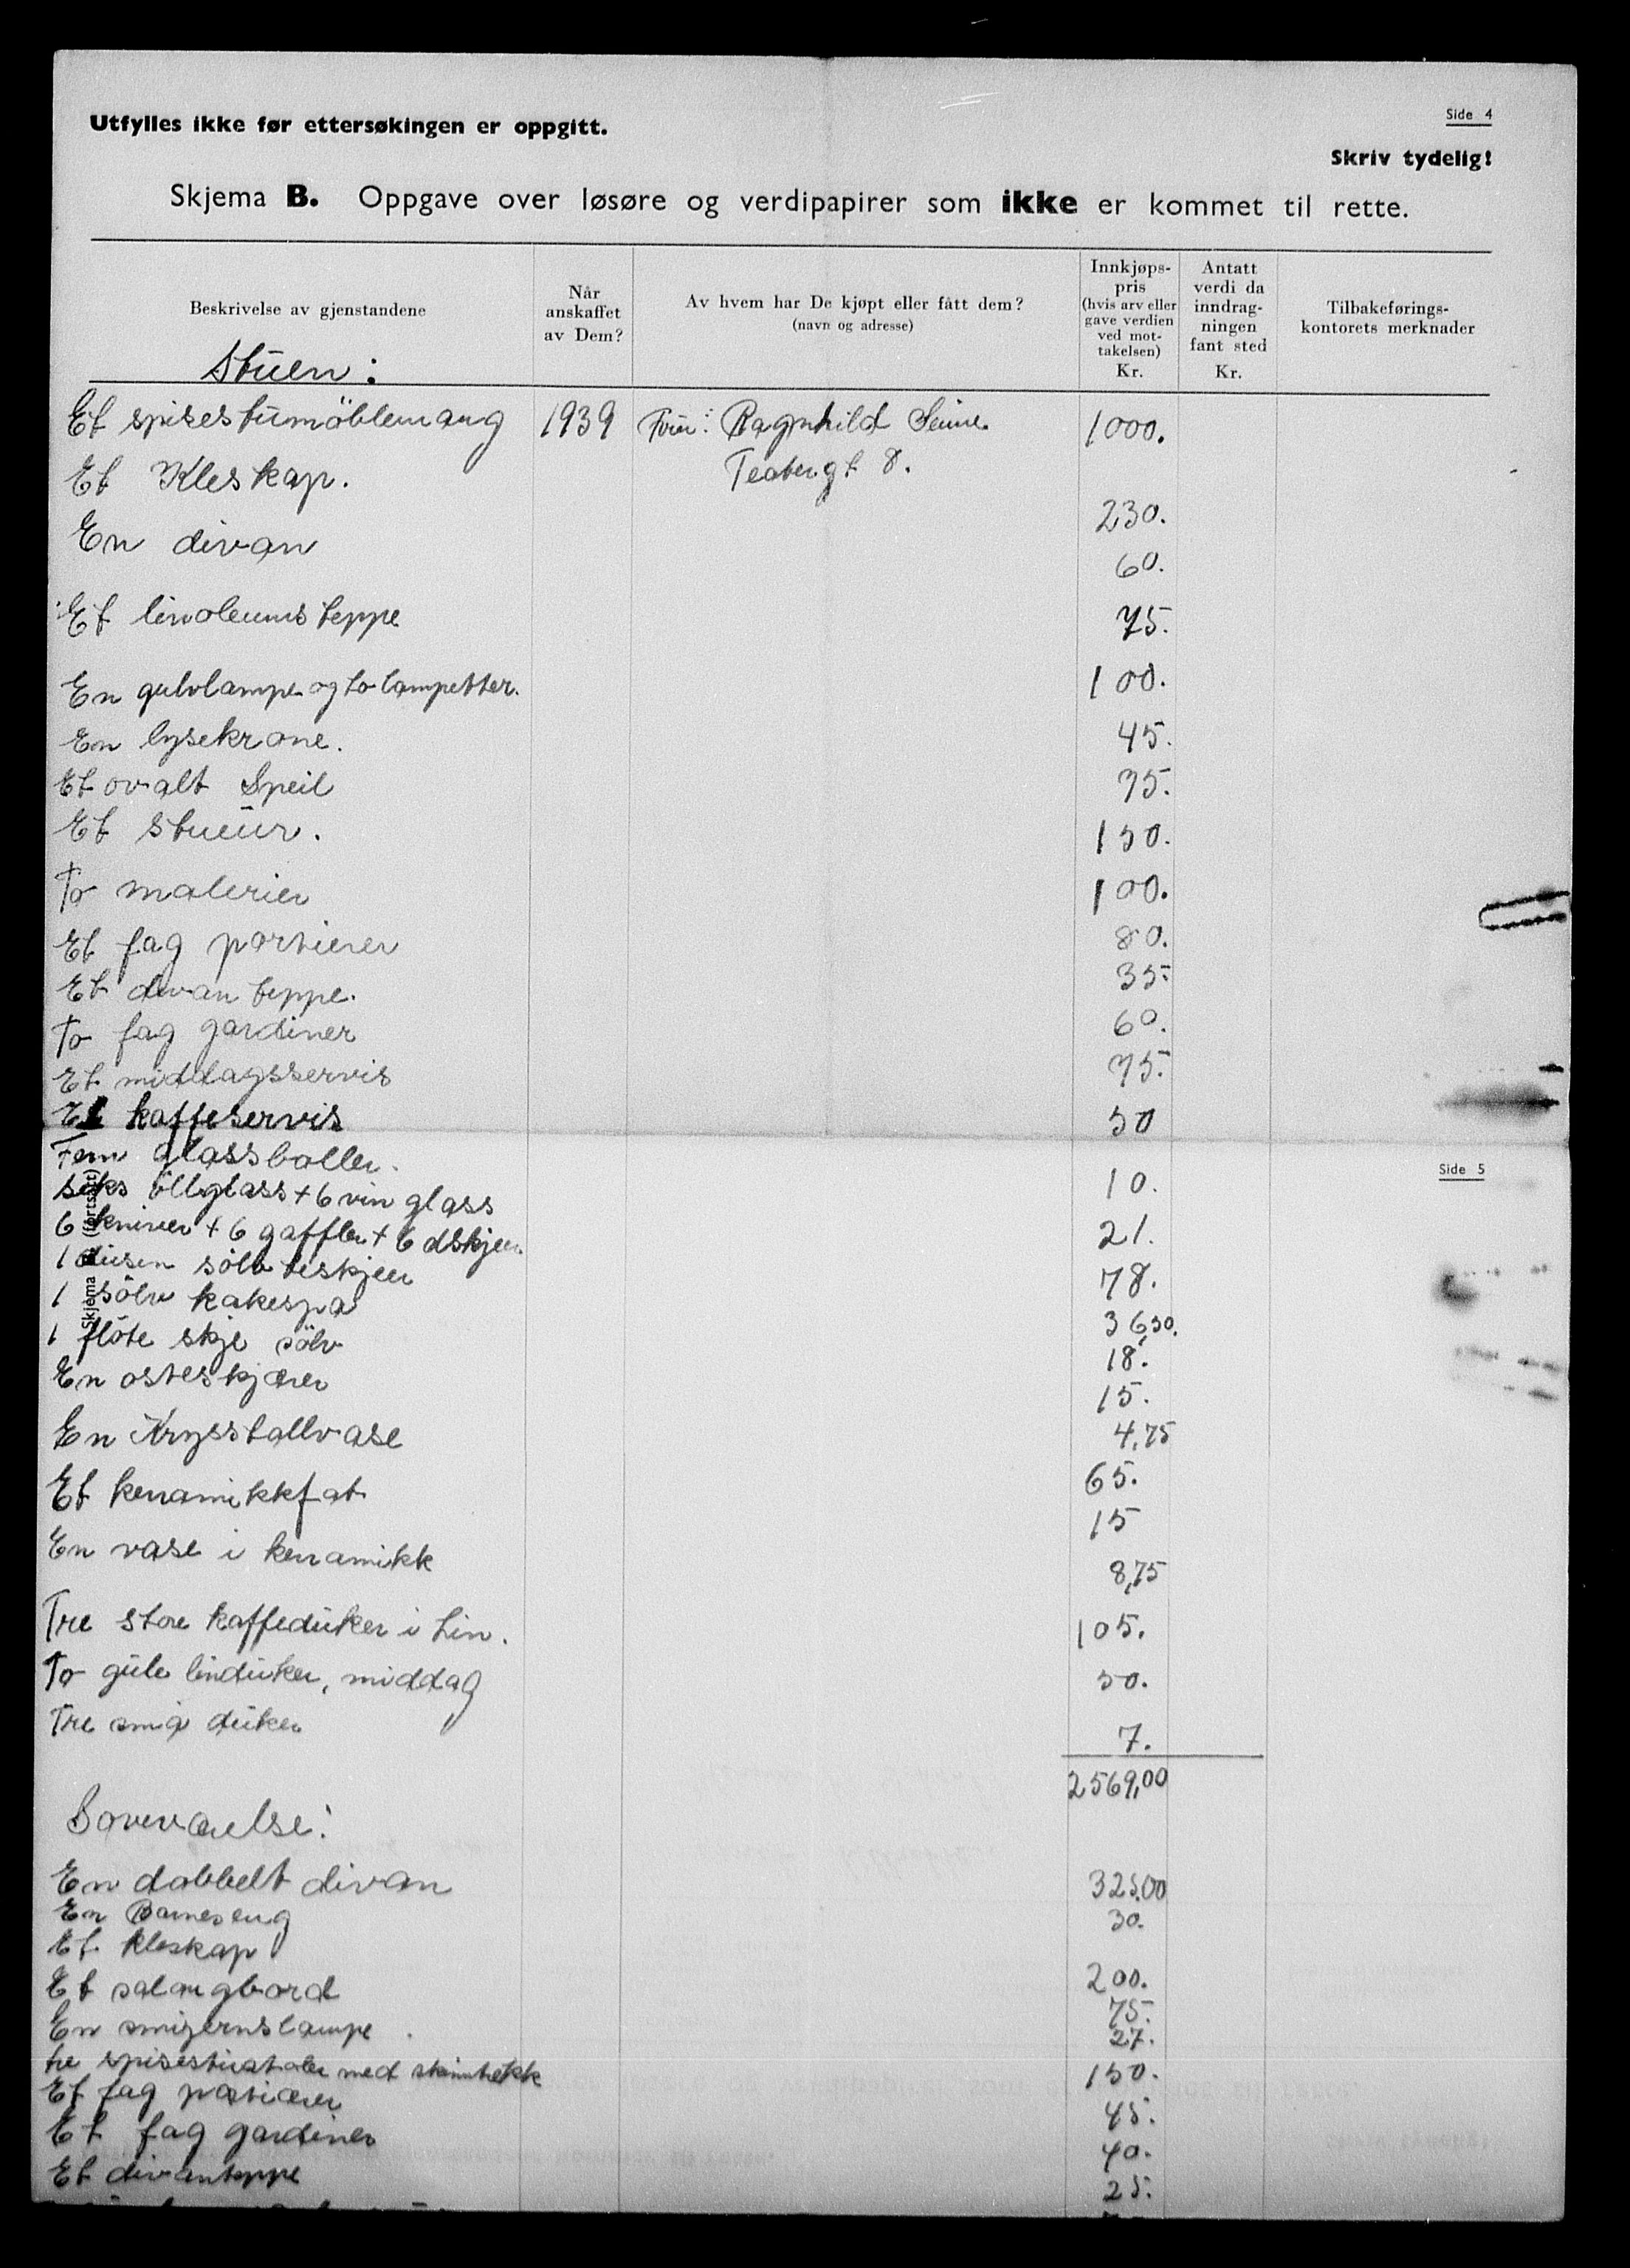 Side 4
Utfylles ikke før ettersøkingen er oppgitt.
Skriv tydelig!
Skjema B. Oppgave over løsøre og verdipapirer som ikke er kommet til rette.
Beskrivelse av gjenstandene
Når anskaffet av Dem?
Av hvem har De kjøpt eller fått dem? (navn og adresse)
Innkjøps-pris (hvis arv eller gave verdien ved mot-takelsen) Kr.
Antatt verdi da inndrag-ningen fant sted Kr.
Tilbakeførings-kontorets merknader
Stuen:
Et spisestumöblemang 1939 Ragnhild 1000.
Et Kleskap. Teatergt 8. 230.
En divan 60.
Et linoleumsteppe 75.
En gulvlampe og to lampetter. 100.
En lysekrone. 45.
Et ovalt Speil 75.
Et stueur. 150.
To malerier 100.
Et fag portierer 80.
Et divanteppe. 35.
To fag gardiner 60.
Et middagsservis 75.
Et kaffeservis 50
Side 5
Skjema (fortsatt)
Fem glassboller. 10.
Seks öllglass + 6 vin glass 21.
6 kniver + 6 gaffler + 6 dskjeer 78.
1 dusen sölv teskjeer 36,50.
1 sölv kakespa 18.
1 flöte skje sölv 15.
En osteskjærer 4,75
En Krysstallvase 65.
Et kerramikkfat 15
En vase i kerramikk 8,75
Tre store kaffeduker i Lin. 105.
To gule linduker, middag 50.
Tre små duker 7.
2569,00
Soveværelse:
En dobbelt divan 325.00
En Barneseng 30.
Et kleskap 200.
Et salongbord 75.
En smijernslampe 27.
tre spisestustoler med skinntrekk 150.
Et fag portierer 45.
Et fag gardiner 40.
Et divanteppe 25.